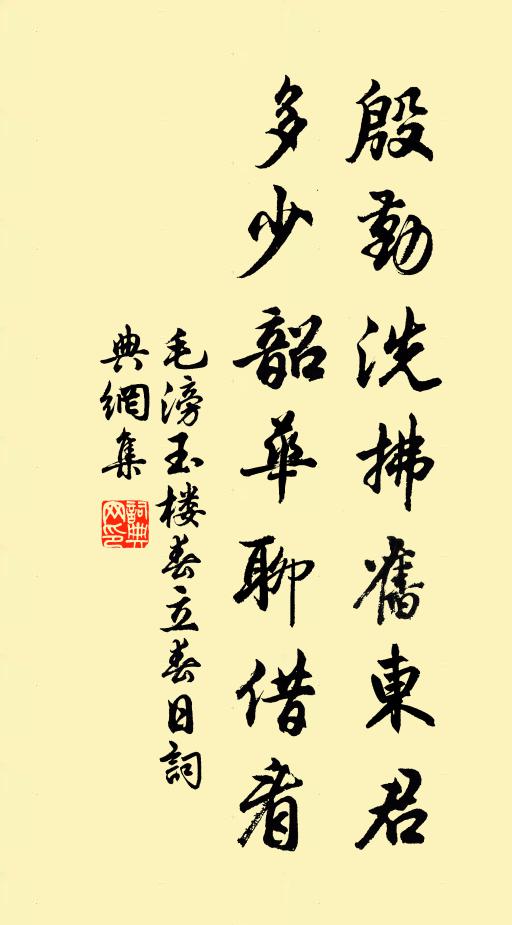 殷勤洗拂舊東君
多少韶華聊借看
毛滂玉楼春立春日詞
典網集
詞典
网印